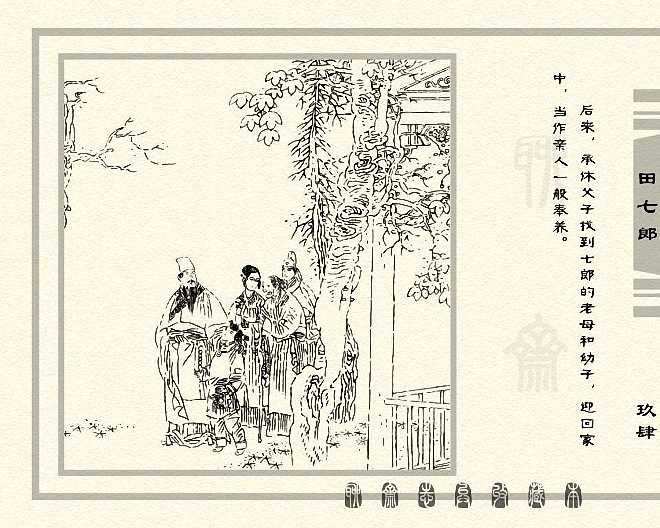 后来，承休父子找到七郎的老母和幼子，迎回家
中，当作亲人一般奉养。
田七郎
玖肆